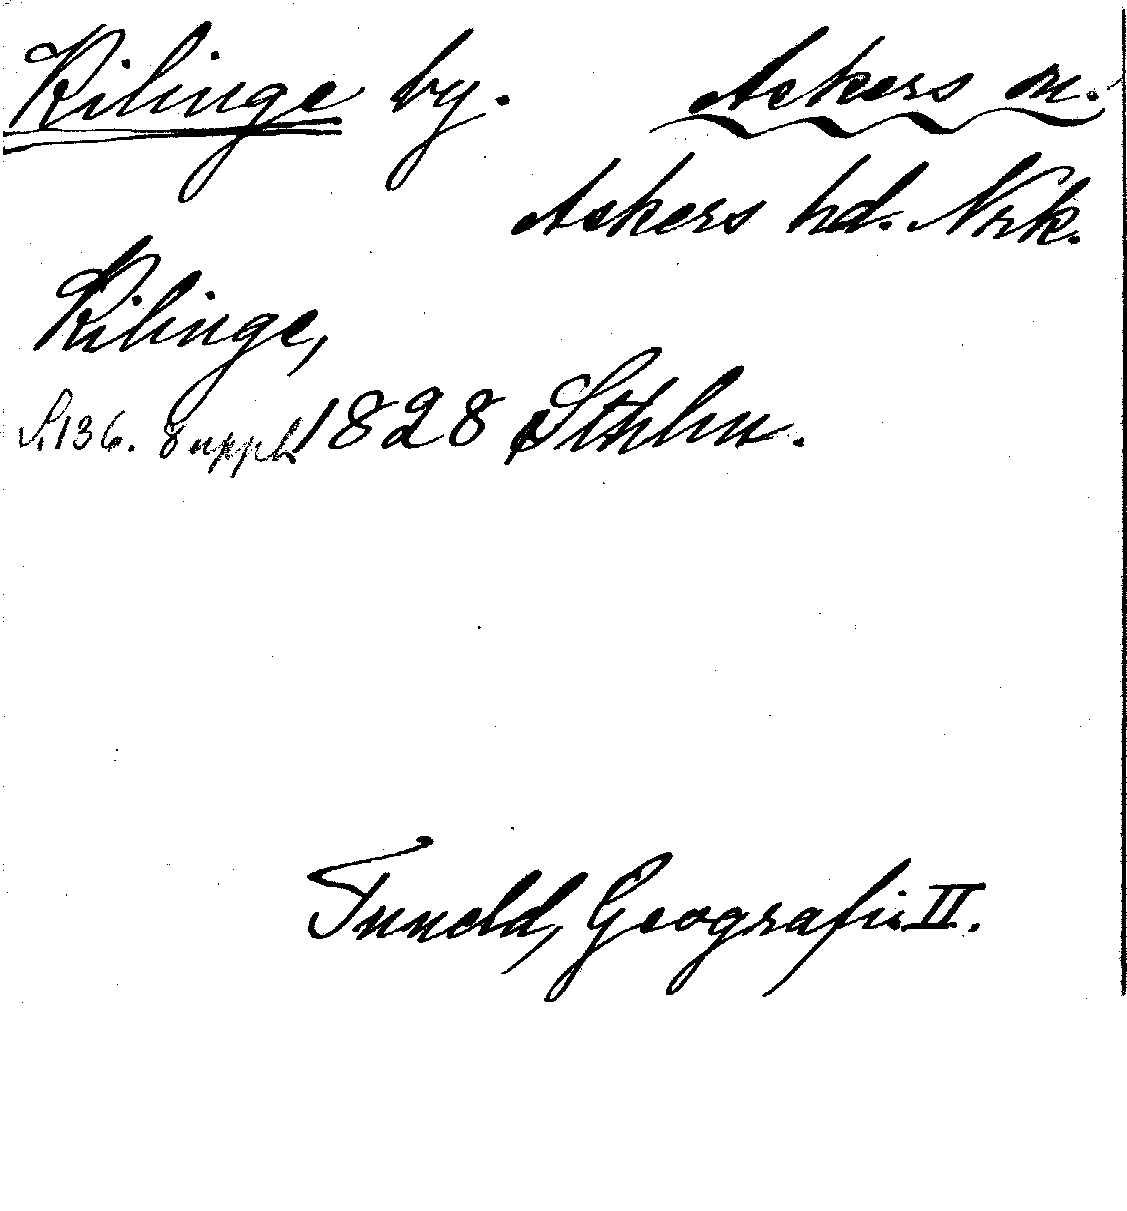 Kilinge by. Askers sn.
Askers hd. Nrk.
Kilinge,
S. 136. 8 uppl. 1828 Sthlm.
Tuneld, Geografi II.